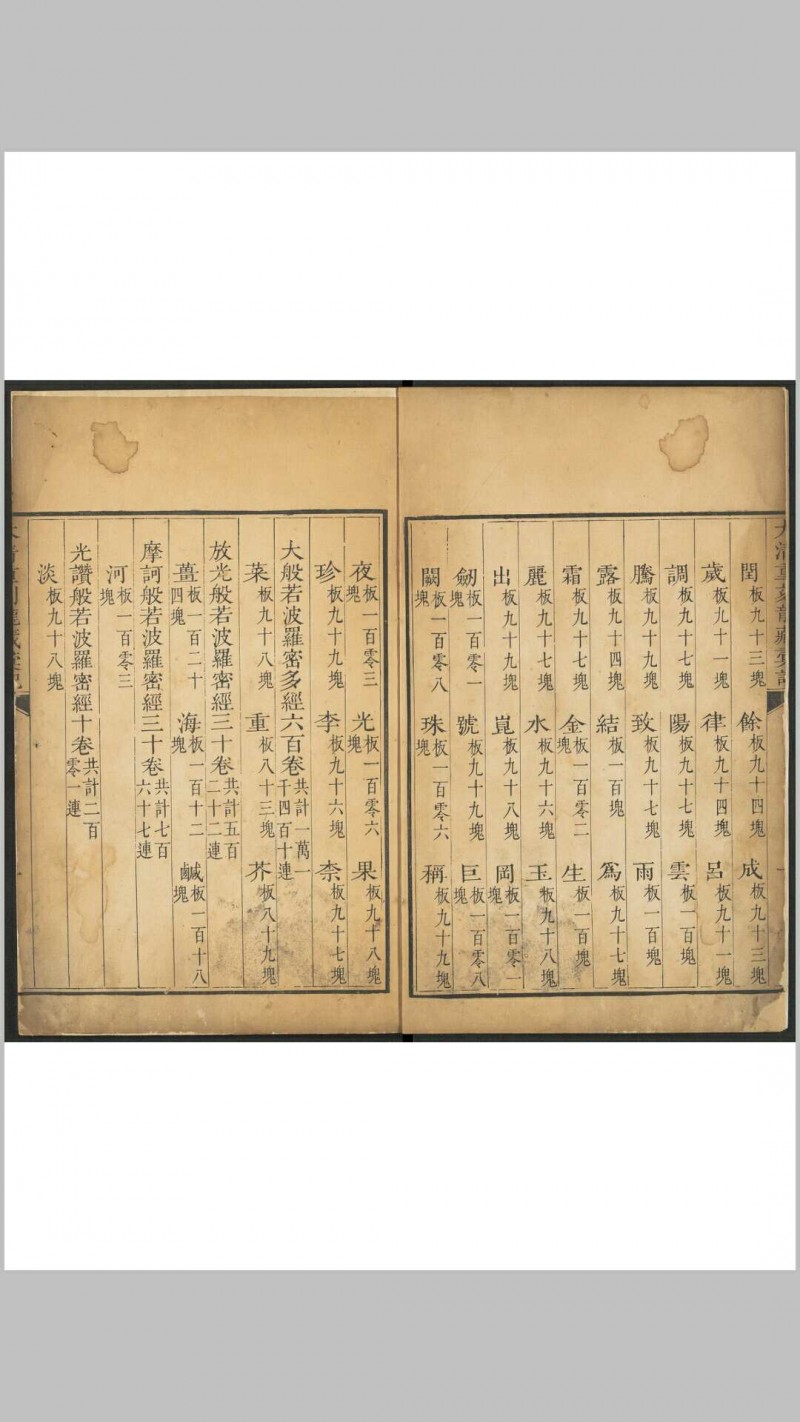 大清重刻龍藏彙記
閏板九十三塊 餘板九十四塊 成板九十三塊
歲板九十一塊 律板九十四塊 呂板九十一塊
調板九十七塊 陽板九十七塊 雲板一百塊
騰板九十九塊 致板九十七塊 雨板一百塊
露板九十四塊 結板一百塊 為板九十七塊
霜板九十七塊 金板一百零二塊 生板一百塊
麗板九十七塊 水板九十六塊 玉板九十八塊
出板九十九塊 崑板九十八塊 岡板一百零一塊
劒板一百零一塊 號板九十九塊 巨板一百零八塊
闕板一百零八塊 珠板一百零六塊 稱板九十九塊
夜板一百零三塊 光板一百零六塊 果板九十八塊
珍板九十九塊 李板九十六塊 柰板九十七塊
大般若波羅密多經六百卷共計一萬一千四百十連
菜板九十八塊 重板八十三塊 芥板八十九塊
放光般若波羅密經三十卷共計五百二十二連
薑板一百二十四塊 海板一百十二塊 鹹板一百十八塊
摩訶般若波羅密經三十卷共計七百六十七連
河板一百零三塊
光讚般若波羅密經十卷共計二百零一連
淡板九十八塊